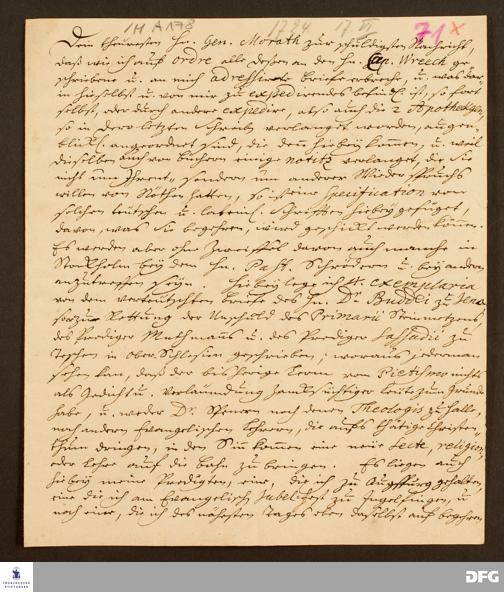 1H A 178
1734 17. VI
71 x
Dem theuresten Hn. Gen. Morath zur schuldigsten Nachricht,
daß wir ich auß ordre alle deßen an den Hn. Cap. Wreech ge-
schriebene u. an mich adressirte Briefe erbreche, u. was dar-
in hieselbst u. von mir zu expedirendes befindl. ist, so fort
selbst, oder durch andere expedire, also auch die 2 Apothequen,
so in dero letzten Schreiben verlanget worden, augen-
blickl. angeordnet sind, die denn hiebey kommen, u. weil
dieselben auch von büchern einige notitz verlanget, die Sie
nicht um Ihrent- sondern um anderer Wieder
willen von Nöthen hatten, so ist eine Specification von
solchen teutschen u. lateinis. Schrifften hiebey gefüget,
davon, was Sie begehren, wird geschickt werden können.
Es werden aber ohne Zweiffel davon auch manche in
Stockholm bey dem Hn. Past. Schrödern u. bey andern
anzutreffen seyn. Hiebey lege ich etl. exemplaria
von dem verteutschten Briefe des Hn. Dr. Buddei zu Jena
so er zur Rettung der Unschuld des Primarii Steinmetzens,
des Prediger Muthmans u. des Prediger Sassadii zu
Teschen in Ober-Schlesien geschrieben; woraus jederman
sehen kan, daß der bisherige Lerm von Pietismo nichts
als Gedicht u. Verläumdung zancksüchtiger Leute zum Grunde
habe, u. weder Dr. Spenern noch denen Theologis zu Halle,
noch andern Evangelischen Lehrern, die aufs thätige Christen-
thum dringen, in den Sinn kommen eine neue Secte, religion,
oder Lehre auf die Bahn zu bringen. Es liegen auch
hiebey meine Predigten, eine, die ich zu Augspurg gehalten,
eine die ich am Evangelisch. Jubelfest zu Ingelfingen, u.
noch eine, die ich des nähesten Tages eben daselbst auf begehren
FRANCKESCHE
STIFTUNGEN
DFG